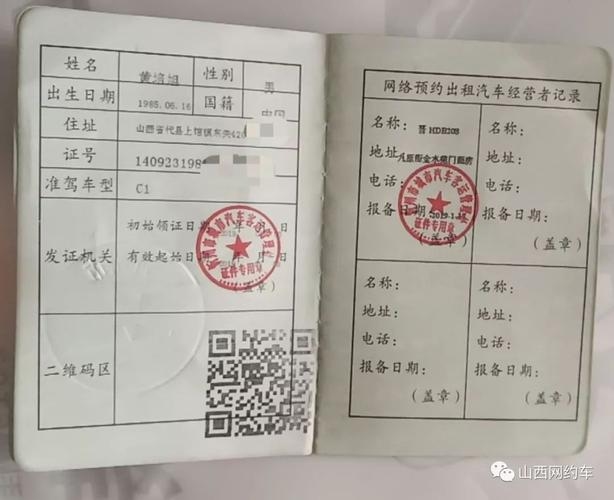 姓名 黄培旭 性别 男
出生日期 1985.06.16 国籍 中国
住址 山西省代县上馆镇东关420
证号 140923198
准驾车型 C1
初始领证日期 年 月 日
发证机关 有效起始日 年 月 日
(盖章)
二维码区
网络预约出租汽车经营者记录
名称: 晋HDR208
地址:
电话:
报备日期: 2019.1
名称:
地址:
电话:
报备日期:
(盖章)
名称:
地址:
电话:
报备日期:
(盖章)
名称:
地址:
电话:
报备日期:
(盖章)
证件专用章
证件专用章
山西网约车